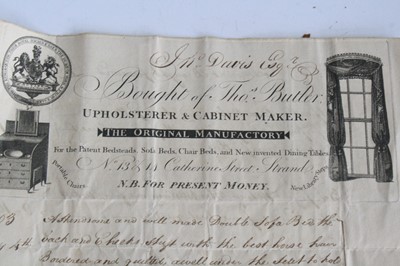 Jno. Davis Esqr.
Bought of Thos. Butler,
UPHOLSTERER & CABINET MAKER.
THE ORIGINAL MANUFACTORY
For the Patent Bedsteads, Sofa Beds, Chair Beds, and New invented Dining Tables
No. 13 & 14 Catherine Street Strand
Portable Chairs
N.B. FOR PRESENT MONEY.
New Library Steps
and well made Double Sofa Bed the
back and Cheeks Stuft with the best horse hair
Bordered and quilted, a well under the Seat to hold